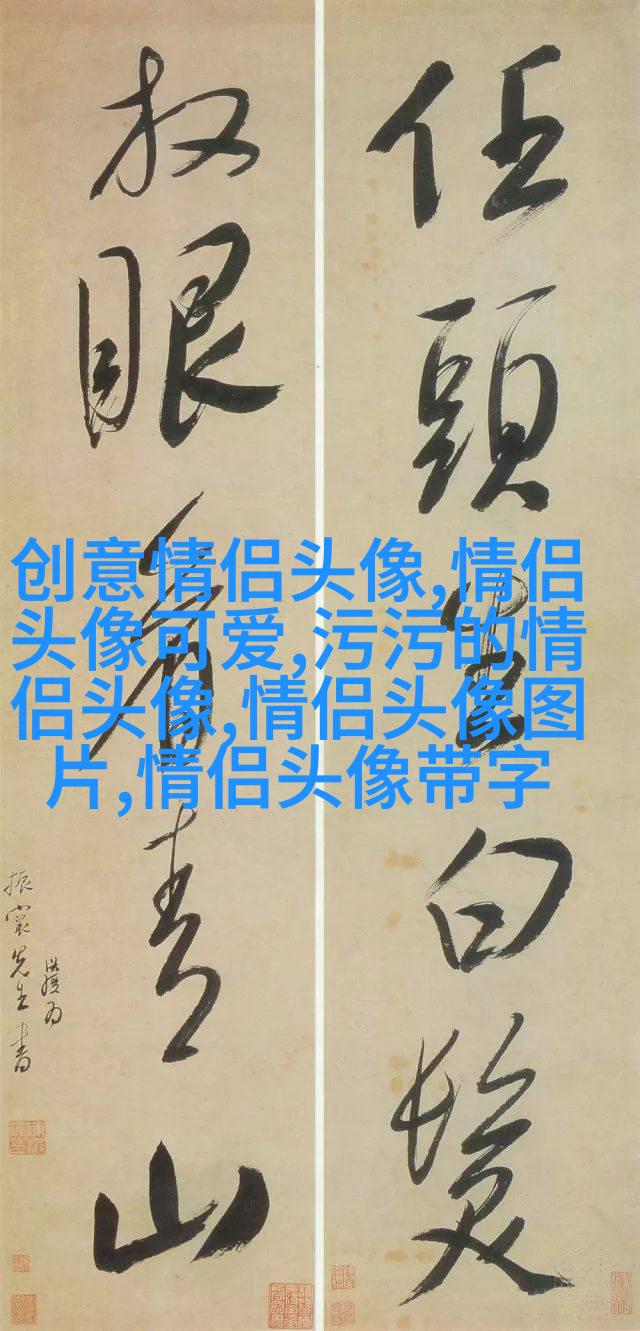 任頭白髮
放眼看青山
先生書
创意情侣头像,情侣
头像可爱,污污的情
侣头像,情侣头像图
片,情侣头像带字